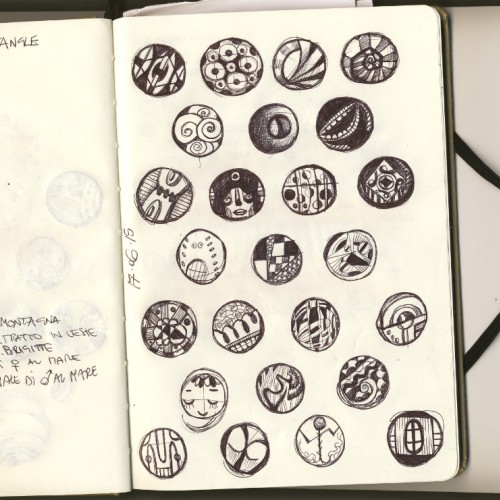 ANGLE
MONTAGNA
TRATTO IN CESTE
BRIGITTE
♀ AL MARE
ALE DI ♂ AL MARE
17.06.15